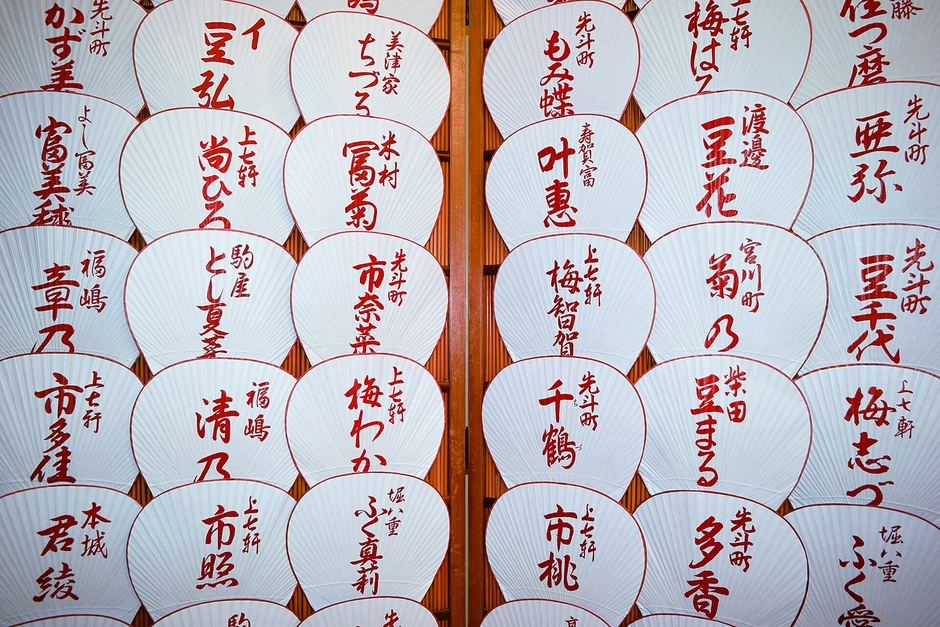 先斗町
かず美
イ
豆弘
美津家
ちづる
先斗町
もみ蝶
上七軒
梅はる
藤
佳つ磨
よし冨美
富美毬
上七軒
尚ひろ
米村
冨菊
寿賀富
叶惠
渡邊
豆花
先斗町
亜弥
福嶋
章乃
駒屋
先斗町
市奈菜
上七軒
梅智賀
宮川町
菊乃
先斗町
豆千代
上七軒
市多佳
福嶋
清乃
上七軒
梅わか
先斗町
千鶴
柴田
豆まる
上七軒
梅志づ
本城
君綾
上七軒
市照
堀八重
ふく真莉
上七軒
市桃
先斗町
多香
堀八重
ふく愛
駒
先斗町